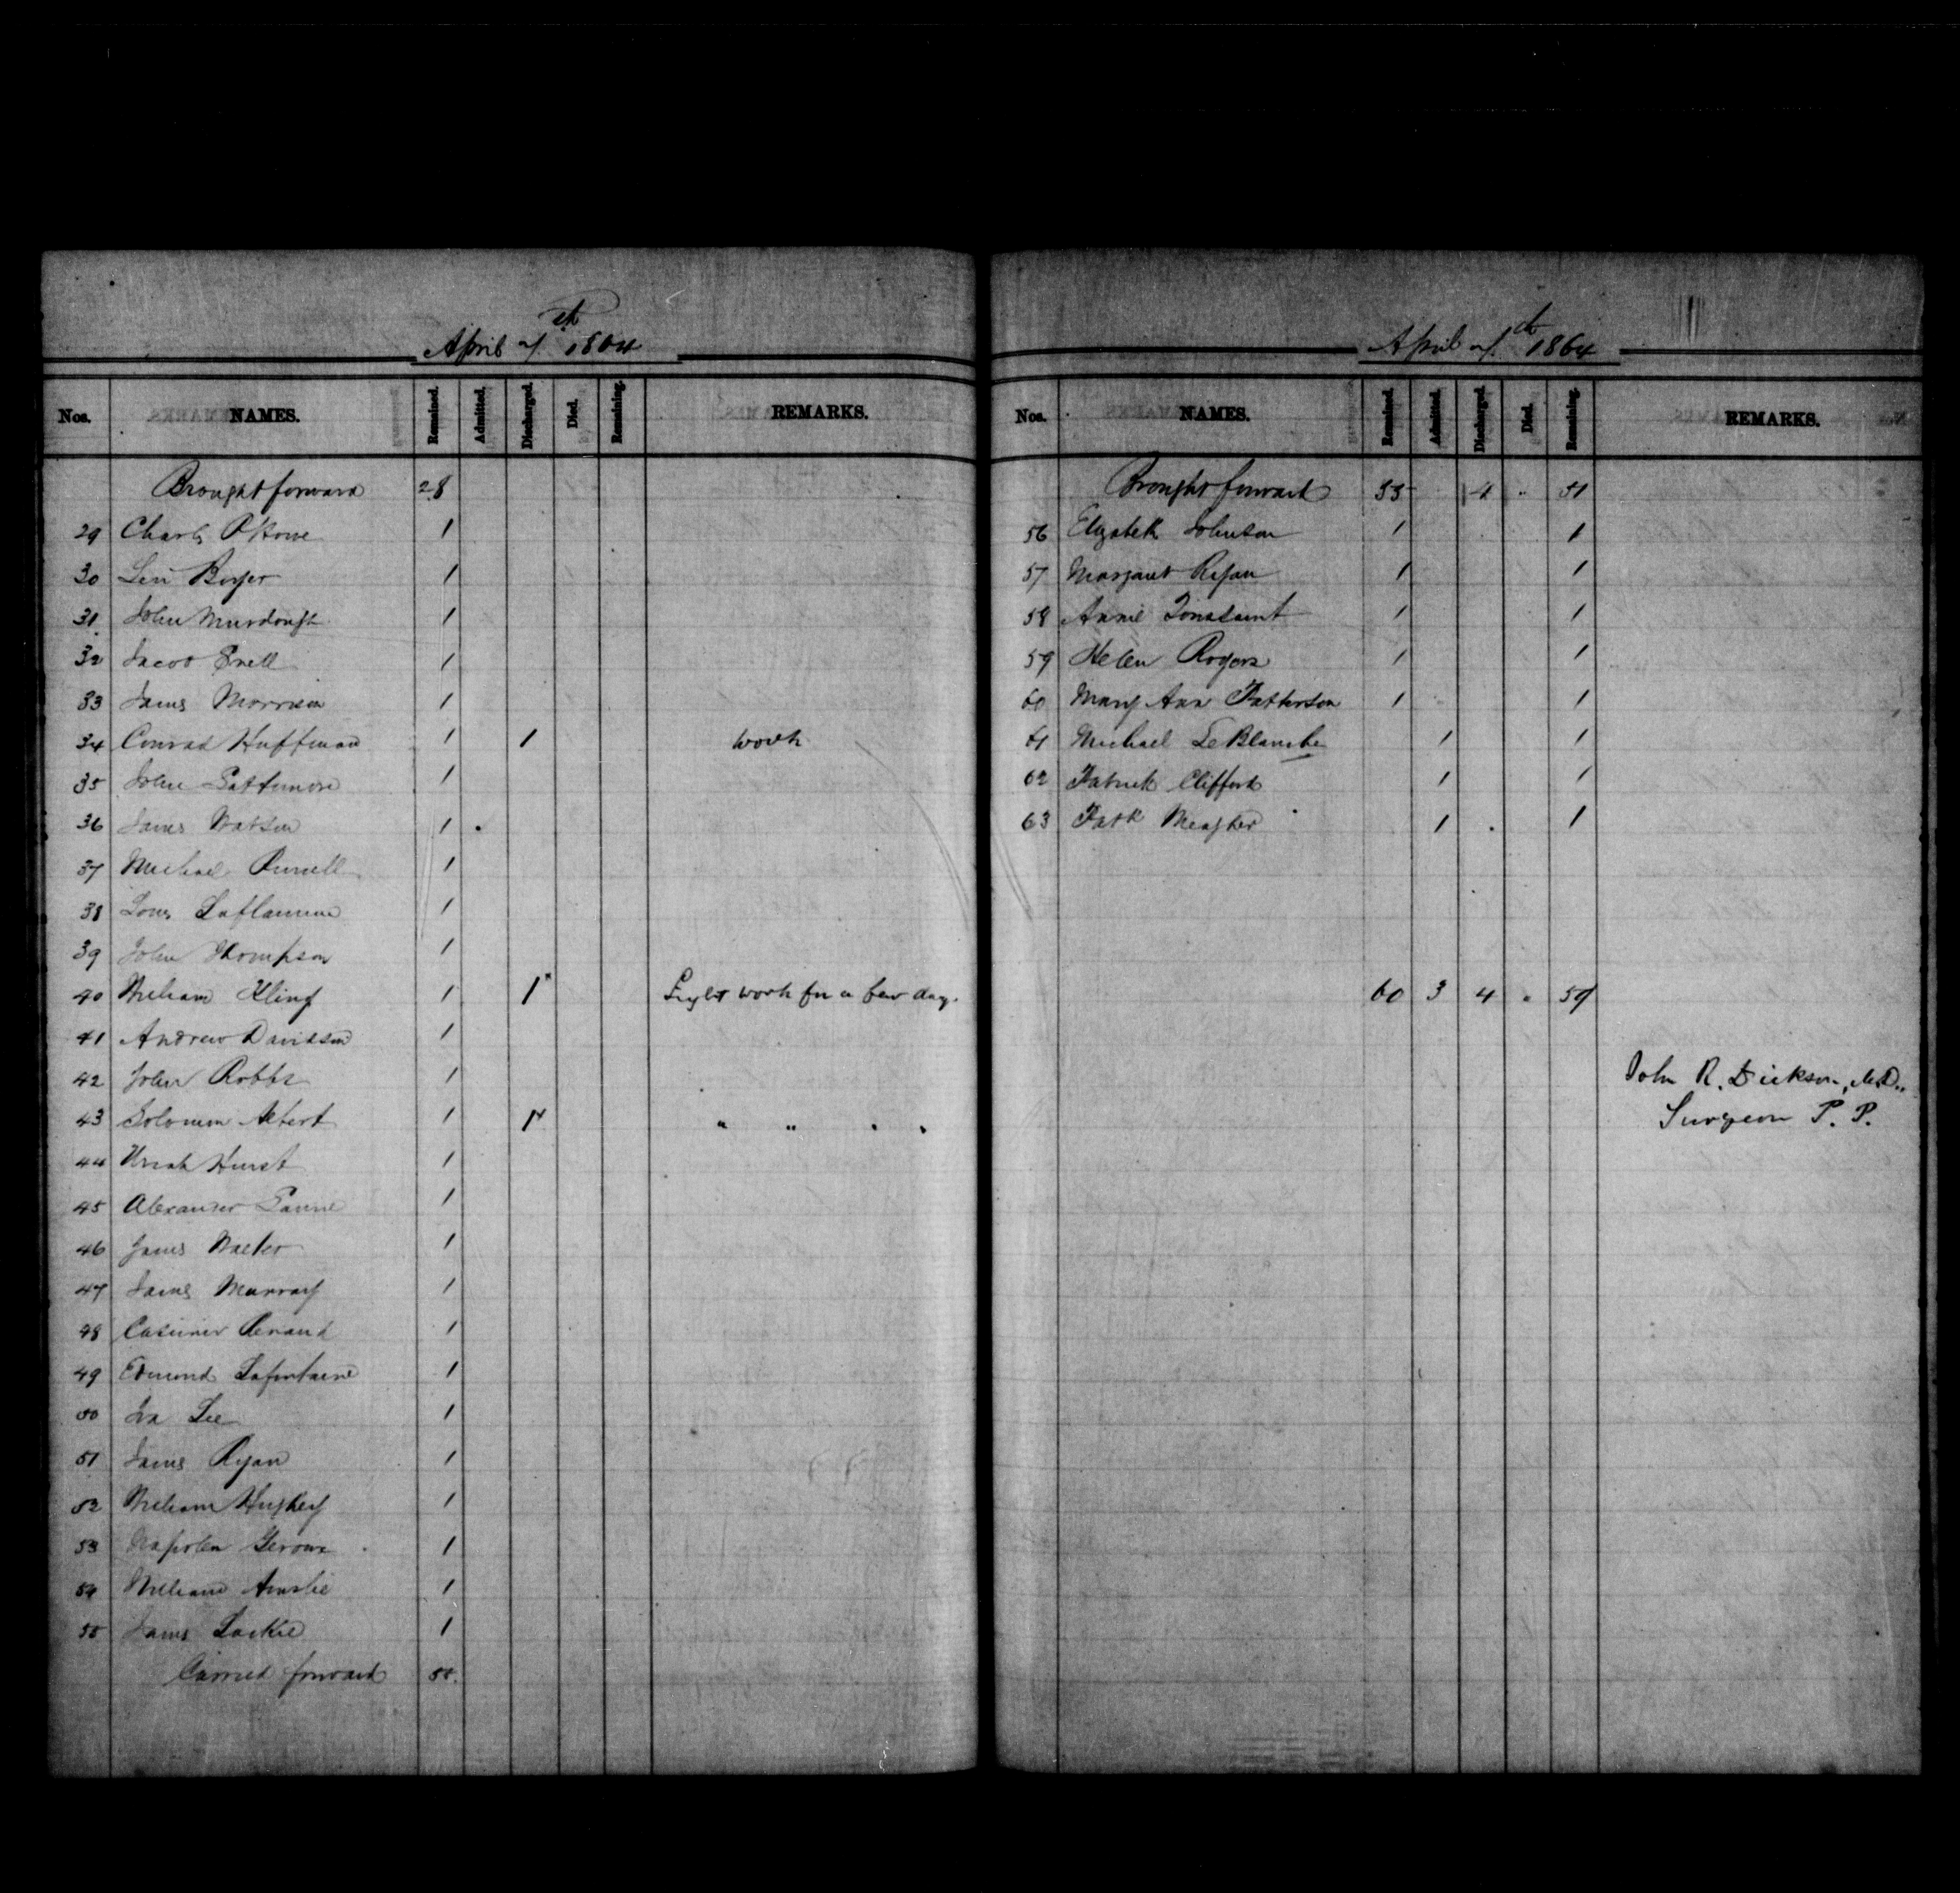 April 7th 1864
Nos. NAMES. Remained. Admitted. Discharged. Died. Remaining. REMARKS.
Brought forward 28
29 Charles 1
30 Levi Boyer 1
31 John Murdough 1
32 Jacob Snell 1
33 James Morrison 1
34 Conrad Huffman 1 1 Work
35 John 1
36 James Watson 1
37 Michael Pursell 1
38 Louis Laflamme 1
39 John Thompson 1
40 William Kling 1 1 Light work for a few days.
41 Andrew Davidson 1
42 John Robbs 1
43 Solomon Albert 1 1 " " " "
44 Uriah Hurst 1
45 Alexander 1
46 James Walker 1
47 James Murray 1
48 Casimir Renaud 1
49 Edmond Lafontaine 1
50 Ira Lee 1
51 James Ryan 1
52 William Hughey 1
53 Napolen Geroux 1
54 William Ainslie 1
55 James Lackie 1
Carried forward 55
April 7th 1864
Nos. NAMES. Remained. Admitted. Discharged. Died. Remaining. REMARKS.
Brought forward 55 4 " 51
56 Elizabeth Johnson 1 1
57 Margaret Ryan 1 1
58 Annie Tousaint 1 1
59 Helen Rogers 1 1
60 Mary Ann Patterson 1 1
61 Michael LeBlanche 1 1
62 Patrick Clifford 1 1
63 Patk Meagher 1 1
60 3 4 " 59
John R. Dickson, M.D.,
Surgeon P. P.